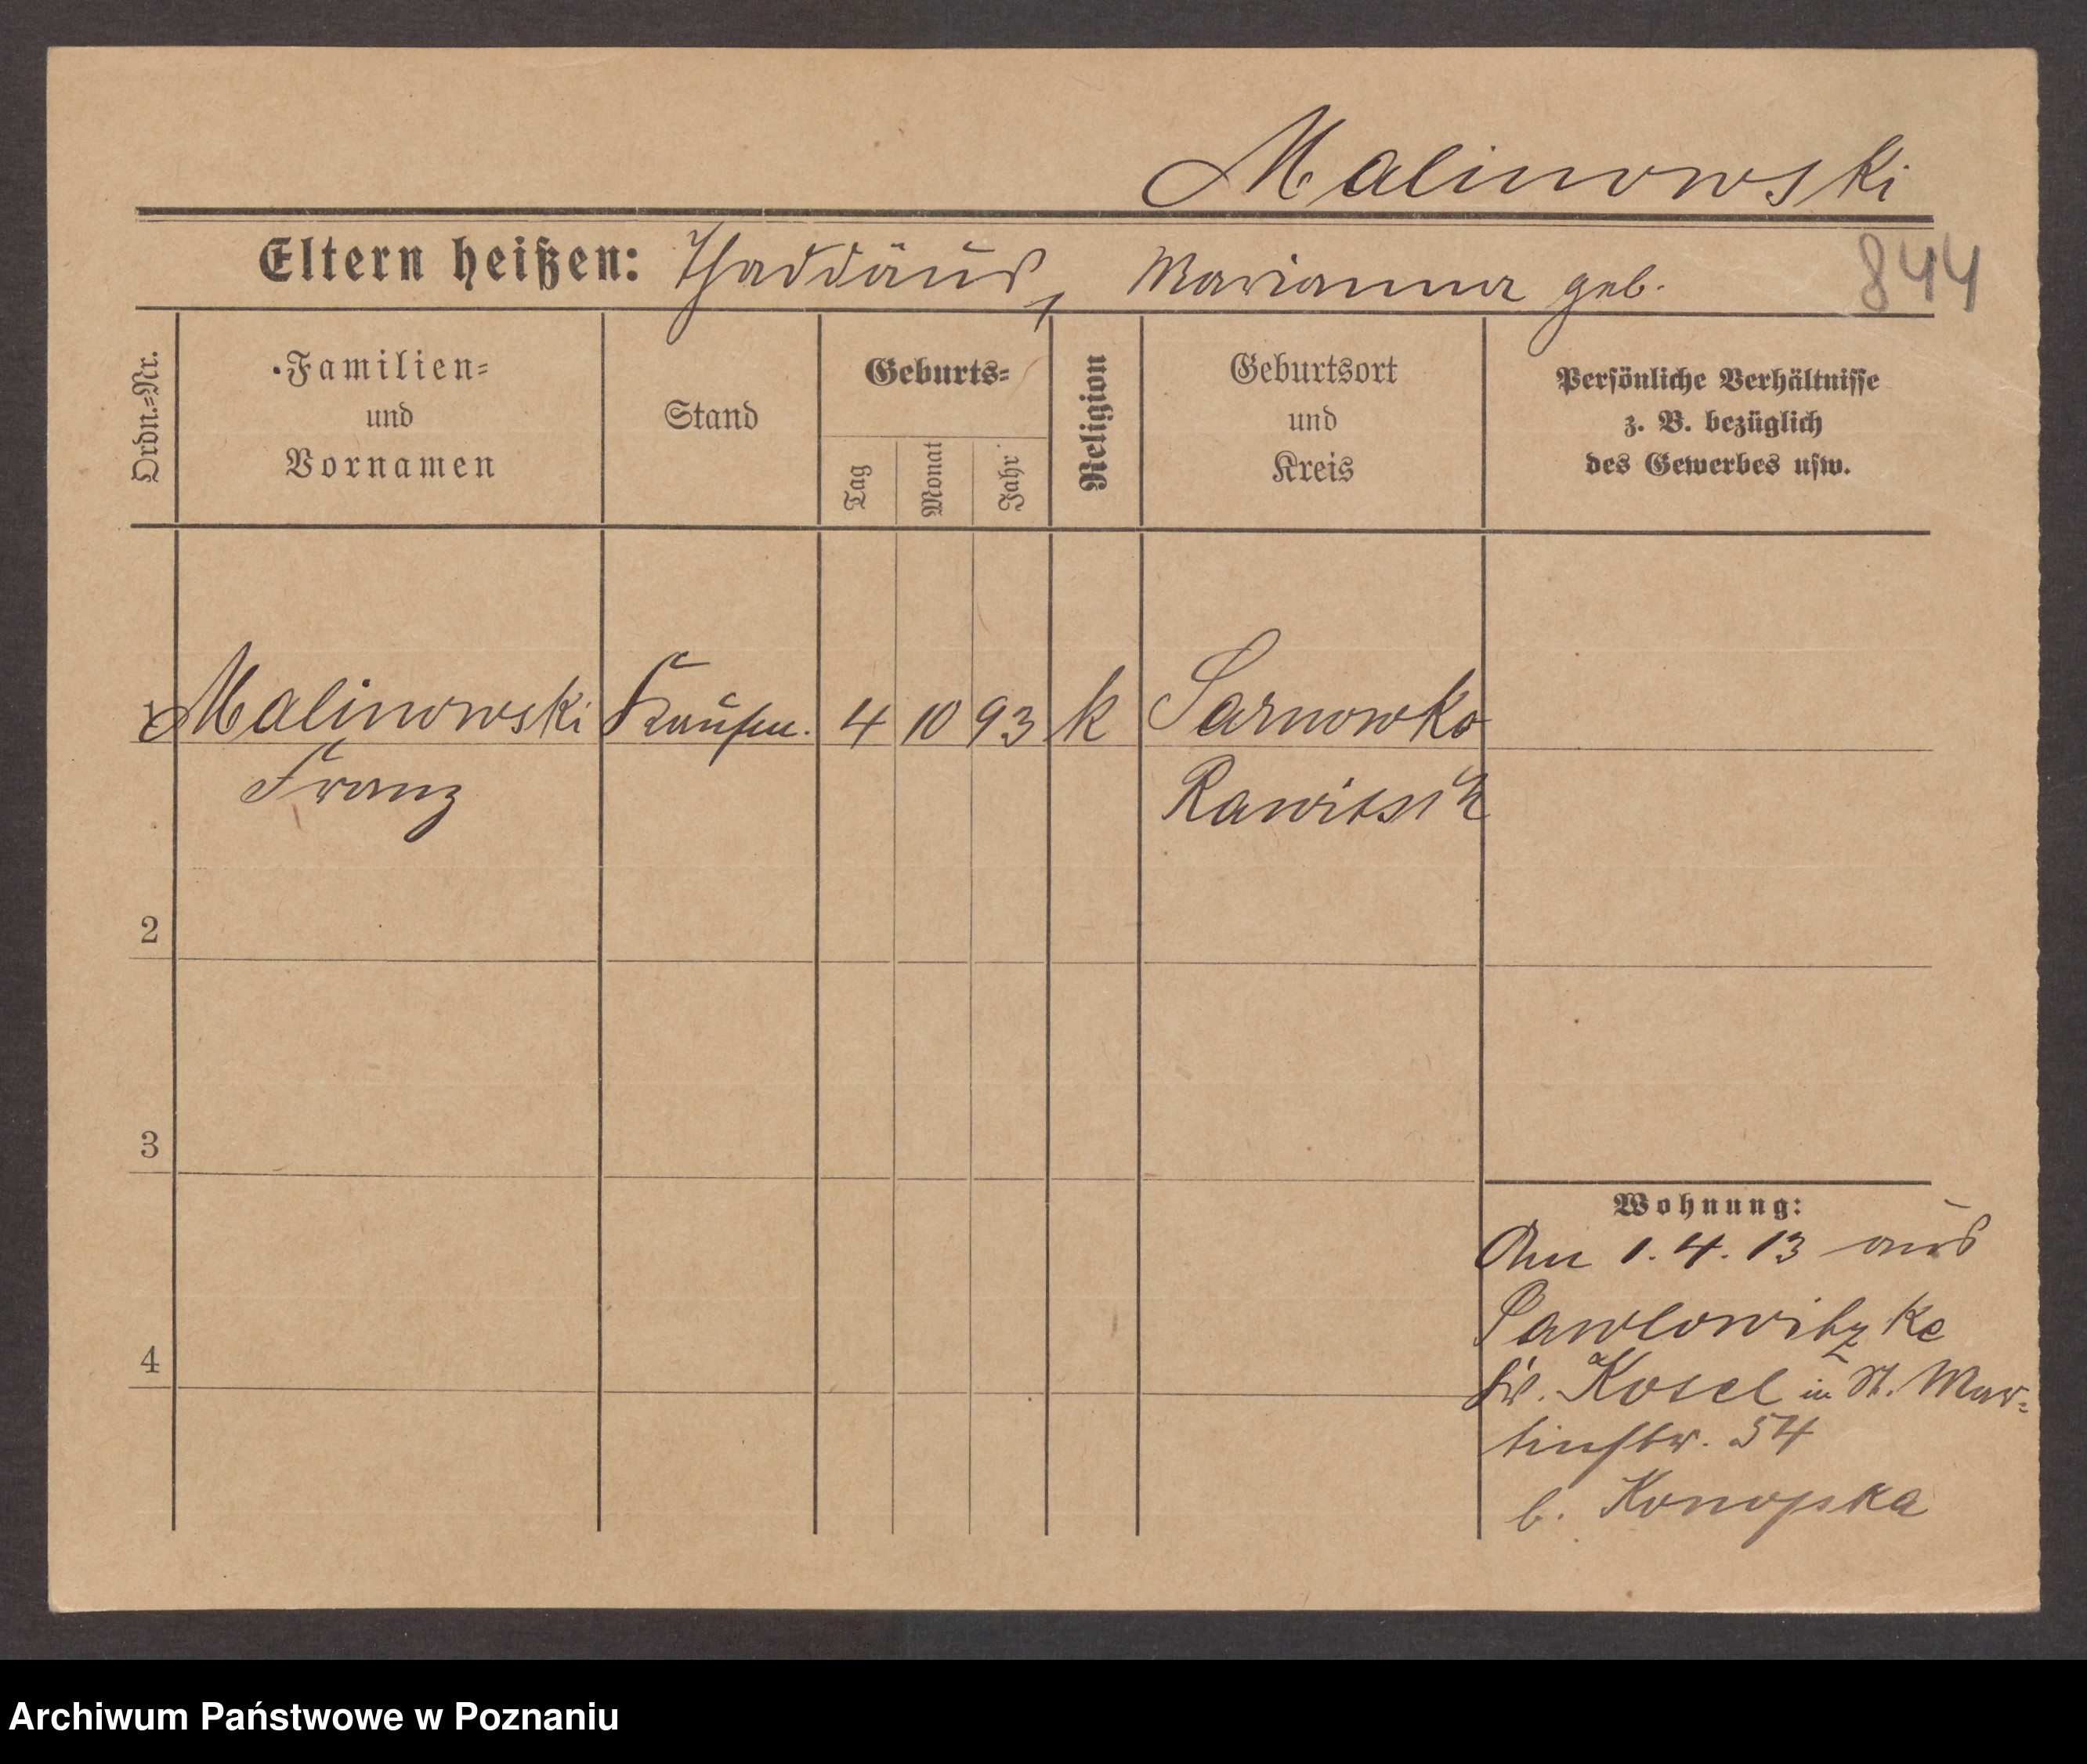 Malinowski
Eltern heißen: Thaddäus, Marianna geb.
844
Ordn.-Nr.
Familien-
und
Vornamen
Stand
Geburts-
Tag
Monat
Jahr
Religion
Geburtsort
und
Kreis
Persönliche Verhältnisse
z. B. bezüglich
des Gewerbes usw.
1 Malinowski Kaufm. 4 10 93 k Sarnowko
Franz Rawitsch
2
3
4
Wohnung:
Am 1. 4. 13 aus
Pawlowitzke
Kr. Kosel in St. Mar-
tinstr. 54
b. Konopka
Archiwum Państwowe w Poznaniu